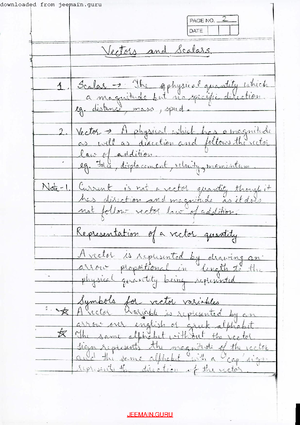 downloaded from jeemain.guru
PAGE NO. 2
DATE
Vectors and Scalars
1. Scalar → The physical quantity which
a magnitude but no specific direction.
eg. distance, mass, speed.
2. Vector → A physical which has a magnitude
as well as direction and follows the vector
law of addition.
eg. Force, displacement, velocity, momentum.
Note-1. Current is not a vector quantity though it
has direction and magnitude as it does
not follow vector law of addition.
Representation of a vector quantity
A vector is represented by drawing an
arrow proportional in length to the
physical quantity being represented
Symbols for vector variables
☆ A vector variable is represented by an
arrow over english or greek alphabet.
☆ The same alphabet without the vector
sign represents the magnitude of the vector
and the same alphabet with a "cap" sign
represents the direction of the vector.
JEEMAIN.GURU